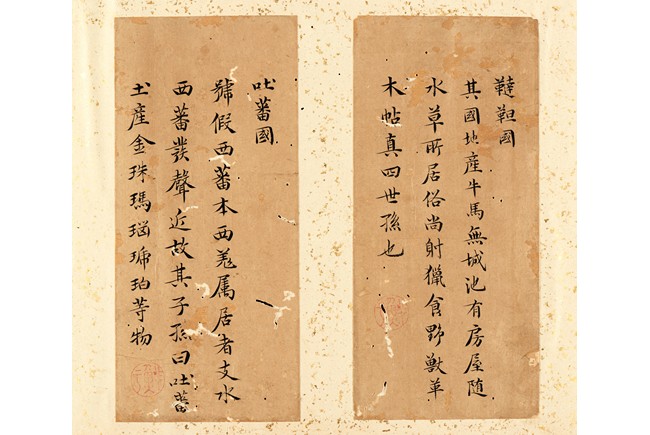 韃靼國
其國地產牛馬無城池有房屋随
水草所居俗尚射獵食野獸革
木帖真四世孫也
吐蕃國
號假西蕃本西羗属居者支水
西蕃裝聲近故其子孫曰吐蕃
土產金珠瑪瑙琥珀等物